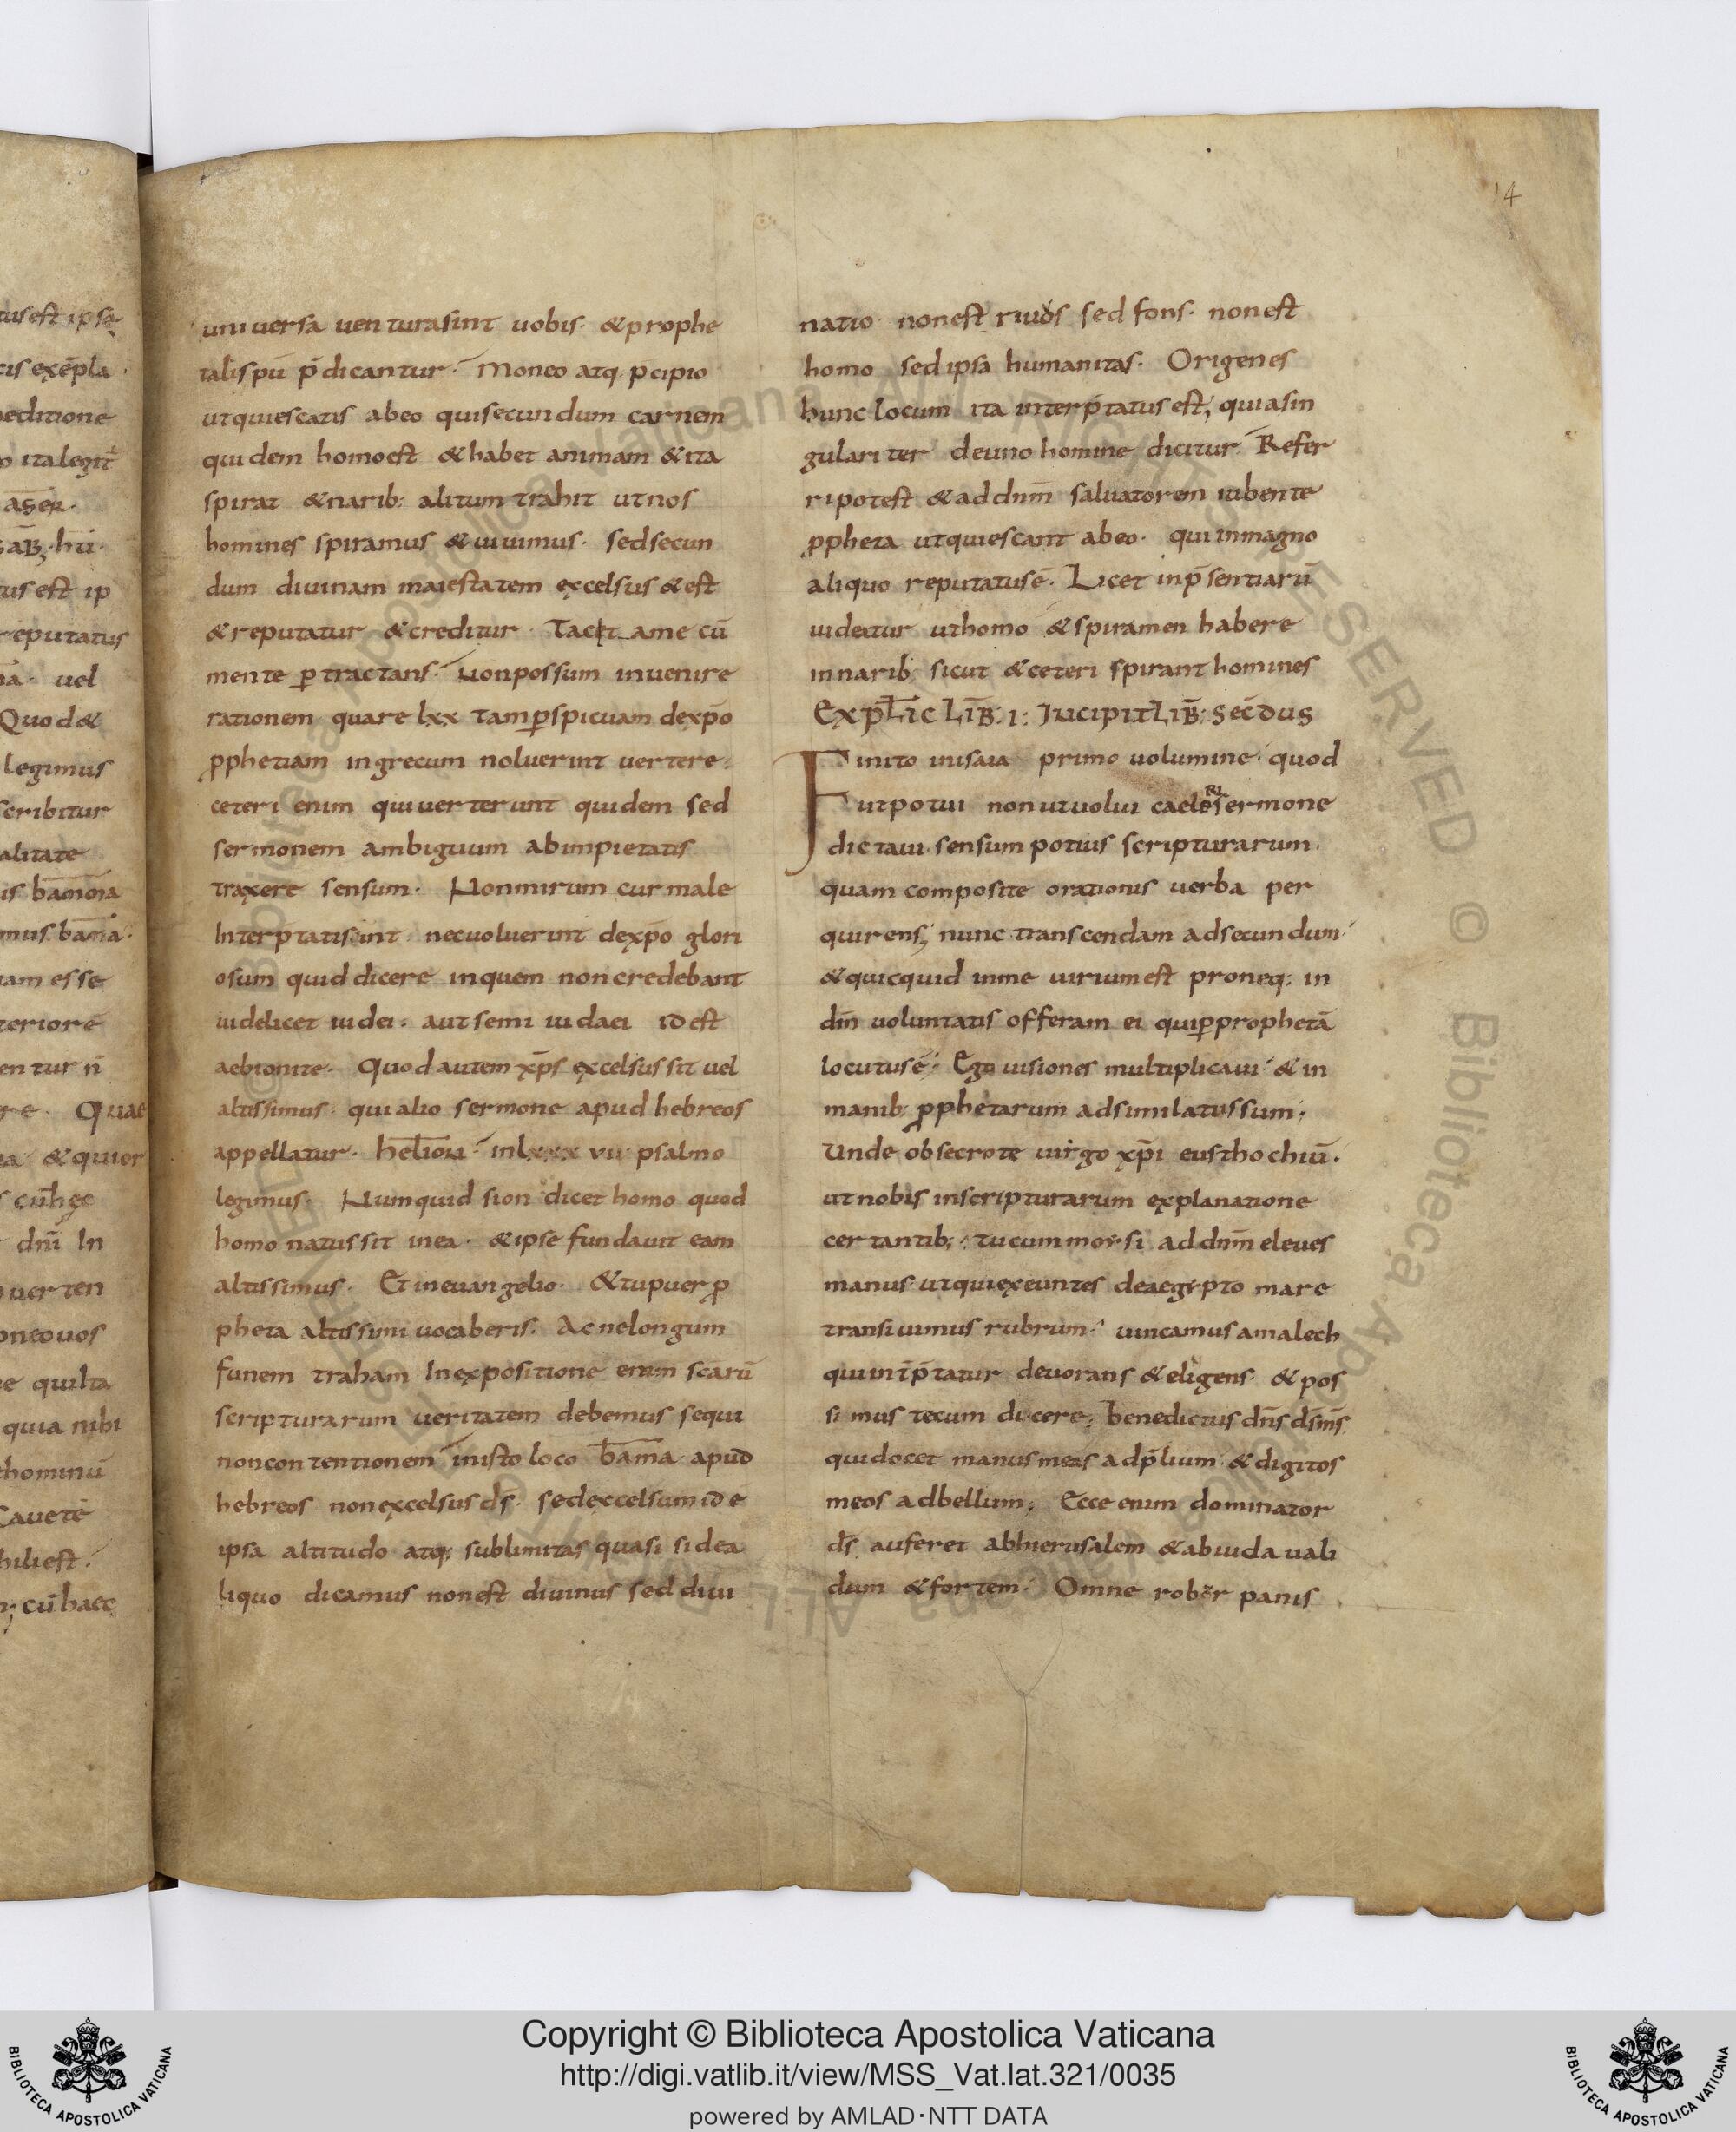 14
uniuersa uenturasint uobis · &prophe
talispū p̄dicantur · Moneo atq· p̄cipio
utquiescatis abeo quisecundum carnem
quidem homoest &habet animam &ita
spirat &narib: alitum trahit utnos
homines spiramus &uiuimus · sedsecun
dum diuinam maiestatem excelsus &est
&reputatur &creditur · Tacit ame cū
mente ꝑtractans · Nonpossum inuenire
rationem quare lxx tamꝑspicuam dexp̄o
ꝓphetiam ingrecum noluerint uertere ·
ceteri enim quiuerterunt quidem sed
sermonem ambiguum abimpietatis
traxere sensum · Nonmirum cur male
Interp̄tatisint necuoluerint dexp̄o glori
osum quiddicere inquem noncredebant
uidelicet iudei · autsemi iudaei idest
aebionite · Quodautem xp̄s excelsussit uel
altissimus · quialio sermone apud hebreos
appellatur · helion · inlxxx vii psalmo
legimus · Numquid sion dicet homo quod
homo natussit inea · &ipse fundauit eam
altissimus · Et ineuangelio · &tupuer ꝓ
pheta altissimi uocaberis · Ac nelongum
funem traham Inexpositione enim scarū
scripturarum ueritatem debemus sequi
noncontentionem inisto loco bama apud
hebreos nonexcelsus d̄s · sedexcelsum id ē
ipsa altitudo atq; sublimitas quasi sidea
liquo dicamus nonest diuinus sed diui
natio nonest riuos sed fons · nonest
homo sedipsa humanitas · Origenes
hunc locum ita interp̄tatusest; quiasin
gulariter deuno homine dicitur · Refer
ripotest &addnm̄ saluatorem iubente
ꝓpheta utquiescant abeo · quiinmagno
aliquo reputatusē · Licet inp̄sentiarū
uideatur uthomo &spiramen habere
innarib; sicut &ceteri spirant homines
Explic Lib̄ · i · Incipit Lib̄ : Secdus
Finito inisaia primo uolumine · quod
utpotui nonutuolui caeleri sermone
dictaui · sensum potius scripturarum ·
quam composite orationis uerba per
quirens; nunc transcendam adsecundum ·
&quicquid inme uiriumest proneq: in
dm̄ uoluntatis offeram ei quiꝑprophetā
locutusē · Ego uisiones multiplicaui · &in
manib; ꝓphetarum adsimilatussum;
Unde obsecrote uirgo xp̄i eusthochiū ·
utnobis inscripturarum explanatione
certantib; · tucummorsi addnm̄ eleues
manus · utquiexeuntes deaegypto mare
transiuimus rubrum · uincamusamalech
quiint̄p̄tatur deuorans &eligens · &pos
simus tecum dicere; benedictus dn̄s d̄sm̄s
quidocet manusmeas adp̄lium · &digitos
meos adbellum; Ecce enim dominator
d̄s auferet abhierusalem &abiuda uali
dum &fortem · Omne robur panis
Copyright © Biblioteca Apostolica Vaticana
http://digi.vatlib.it/view/MSS_Vat.lat.321/0035
powered by AMLAD·NTT DATA